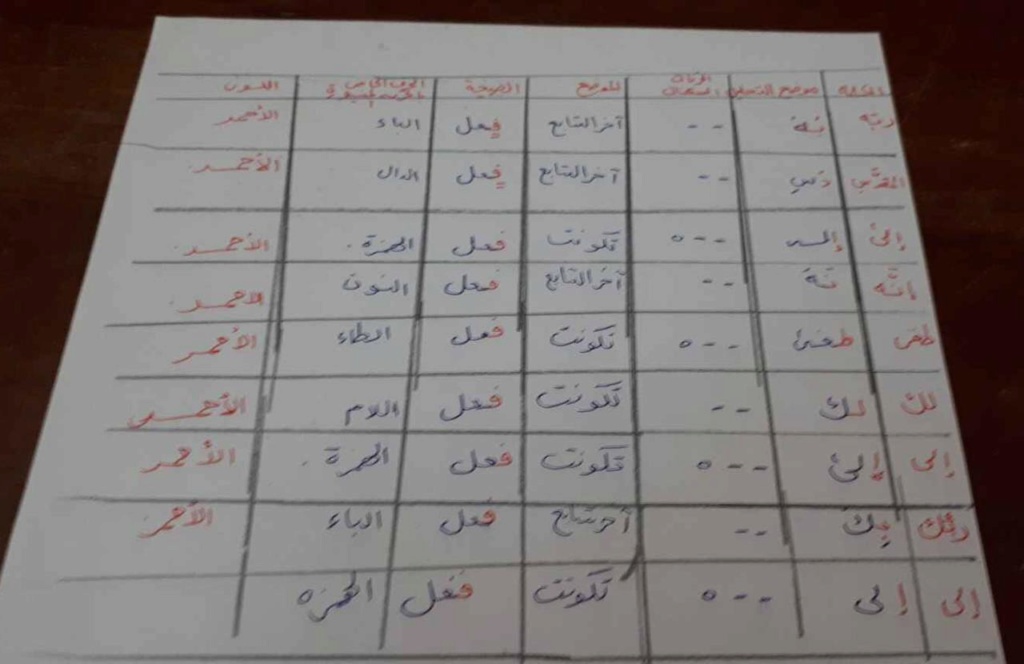 الكلمة موضع التحليل الحركات السكنات الموضع الصيغة اللون
ربه بَهُ - - آخر التتابع فعل الباء الأحمر
المقدَّسِ دَسِ - - آخر التتابع فعل الدال الأحمر
إلى - - ه تكونت فعل الهمزة الأحمر
إنَّه نَهُ - - آخر التتابع فعل النون الاحمر
طغى طغى - - ه تكونت فعل الطاء الأحمر
لك لك - - تكونت فعل اللام الأحمر
إلى إلى - - ه تكونت فعل الهمزة الأحمر
ربك بِكَ - - آخر تتابع فعل الباء الأحمر
إلى إلى - - ه تكونت فعل الهمزه